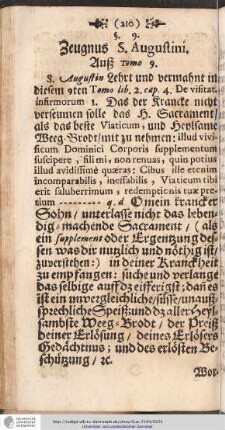 (210)
§. 9.
Zeugnus S. Augustini.
Auß Tomo 9.
S. Augustin Lehrt und vermahnt in
diesem 9ten Tomo lib. 2. cap. 4. De visitat.
infirmorum 1. Das der Krancke nicht
verseumen solle das H. Sacrament/
als das beste Viaticum, und Heylsame
Weeg-Brodt/mit zu nehmen: illud vivi-
ficum Dominici Corporis supplementum
suscipere, fili mi, non renuas, quin potius
illud avidissimè quæras: Cibus ille etenim
incomparabilis, ineffabilis, Viaticum tibi
erit saluberrimum, redemptionis tuæ pre-
tium --------- q. d. O mein krancker
Sohn/ unterlasse nicht das leben-
dig-machende Sacrament/ (als
ein supplement oder Ergentzung des-
sen was dir nutzlich und nöthig ist/
zuverstehen/) in deiner Kranckheit
zu empfangen: suche und verlange
das selbige auffs eifferigst; dan es
ist ein unvergleichliche/süsse/unauß-
sprechliche Speiß und dz aller Heyl-
sambste Weeg-Brodt/ der Preiß
deiner Erlösung/ deines Erlösers
Gedächtnus; und des erlösten Be-
schützung/ &c.
Wor-